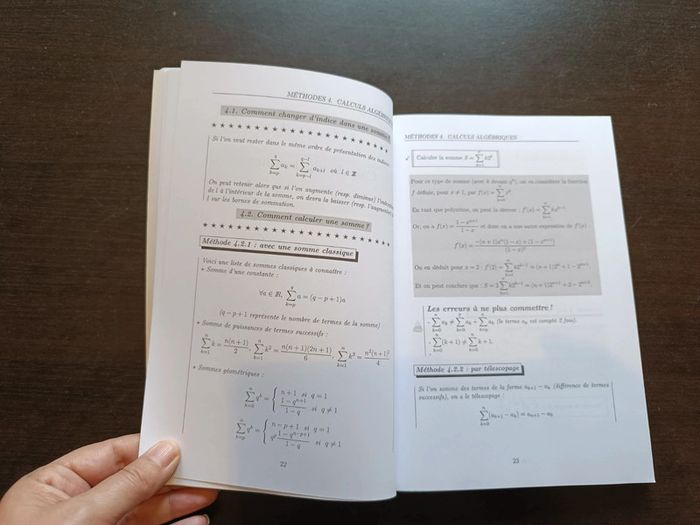 MÉTHODES 4. CALCULS ALGÉBRIQUES
4.1. Comment changer d'indice dans une somme ?
Si l'on veut rester dans le même ordre de présentation des indices
$\sum_{k=p}^{q} a_k = \sum_{k=p-l}^{q-l} a_{k+l}$ où $l \in \mathbb{Z}$
On peut retenir alors que si l'on augmente (resp. diminue) l'indice
de l à l'intérieur de la somme, on devra la baisser (resp. l'augmenter)
l sur les bornes de sommation.
4.2. Comment calculer une somme ?
Méthode 4.2.1 : avec une somme classique
Voici une liste de sommes classiques à connaître :
• Somme d'une constante :
$\forall a \in \mathbb{R}, \sum_{k=p}^{q} a = (q-p+1)a$
(q − p + 1 représente le nombre de termes de la somme)
• Somme de puissances de termes successifs :
$\sum_{k=1}^{n} k = \frac{n(n+1)}{2}, \sum_{k=1}^{n} k^2 = \frac{n(n+1)(2n+1)}{6}, \sum_{k=1}^{n} k^3 = \frac{n^2(n+1)^2}{4}$
• Sommes géométriques :
$\sum_{k=0}^{n} q^k = \begin{cases} n+1 & si\ q = 1 \\ \frac{1-q^{n+1}}{1-q} & si\ q \neq 1 \end{cases}$
$\sum_{k=p}^{n} q^k = \begin{cases} n-p+1 & si\ q = 1 \\ q^p \frac{1-q^{n-p+1}}{1-q} & si\ q \neq 1 \end{cases}$
22
MÉTHODES 4. CALCULS ALGÉBRIQUES
Calculer la somme $S = \sum_{k=1}^{n} k2^k$
Pour ce type de somme (avec k devant $q^k$), on considère la fonction
f définie, pour x ≠ 1, par $f(x) = \sum_{k=0}^{n} x^k$
En tant que polynôme, on peut la dériver : $f'(x) = \sum_{k=1}^{n} kx^{k-1}$
Or, on a $f(x) = \frac{1-x^{n+1}}{1-x}$ et donc on a une autre expression de f' :
$f'(x) = \frac{-(n+1)x^n(1-x)+(1-x^{n+1})}{(1-x)^2}$
On en déduit pour x = 2 : $f'(2) = \sum_{k=1}^{n} k2^{k-1} = (n+1)2^n + 1 - 2^{n+1}$
Et on peut conclure que : $S = 2\sum_{k=1}^{n} k2^{k-1} = (n+1)2^{n+1} + 2 - 2^{n+2}$
Les erreurs à ne plus commettre !
(le terme $a_p$ est compté 2 fois).
$\sum_{k=0}^{n} (k+1) \neq \sum_{k=0}^{n} k + 1.$
Méthode 4.2.2 : par télescopage
Si l'on somme des termes de la forme $a_{k+1} - a_k$ (différence de termes
successifs), on a le télescopage :
$\sum_{k=0}^{n} (a_{k+1} - a_k) = a_{n+1} - a_0$
23